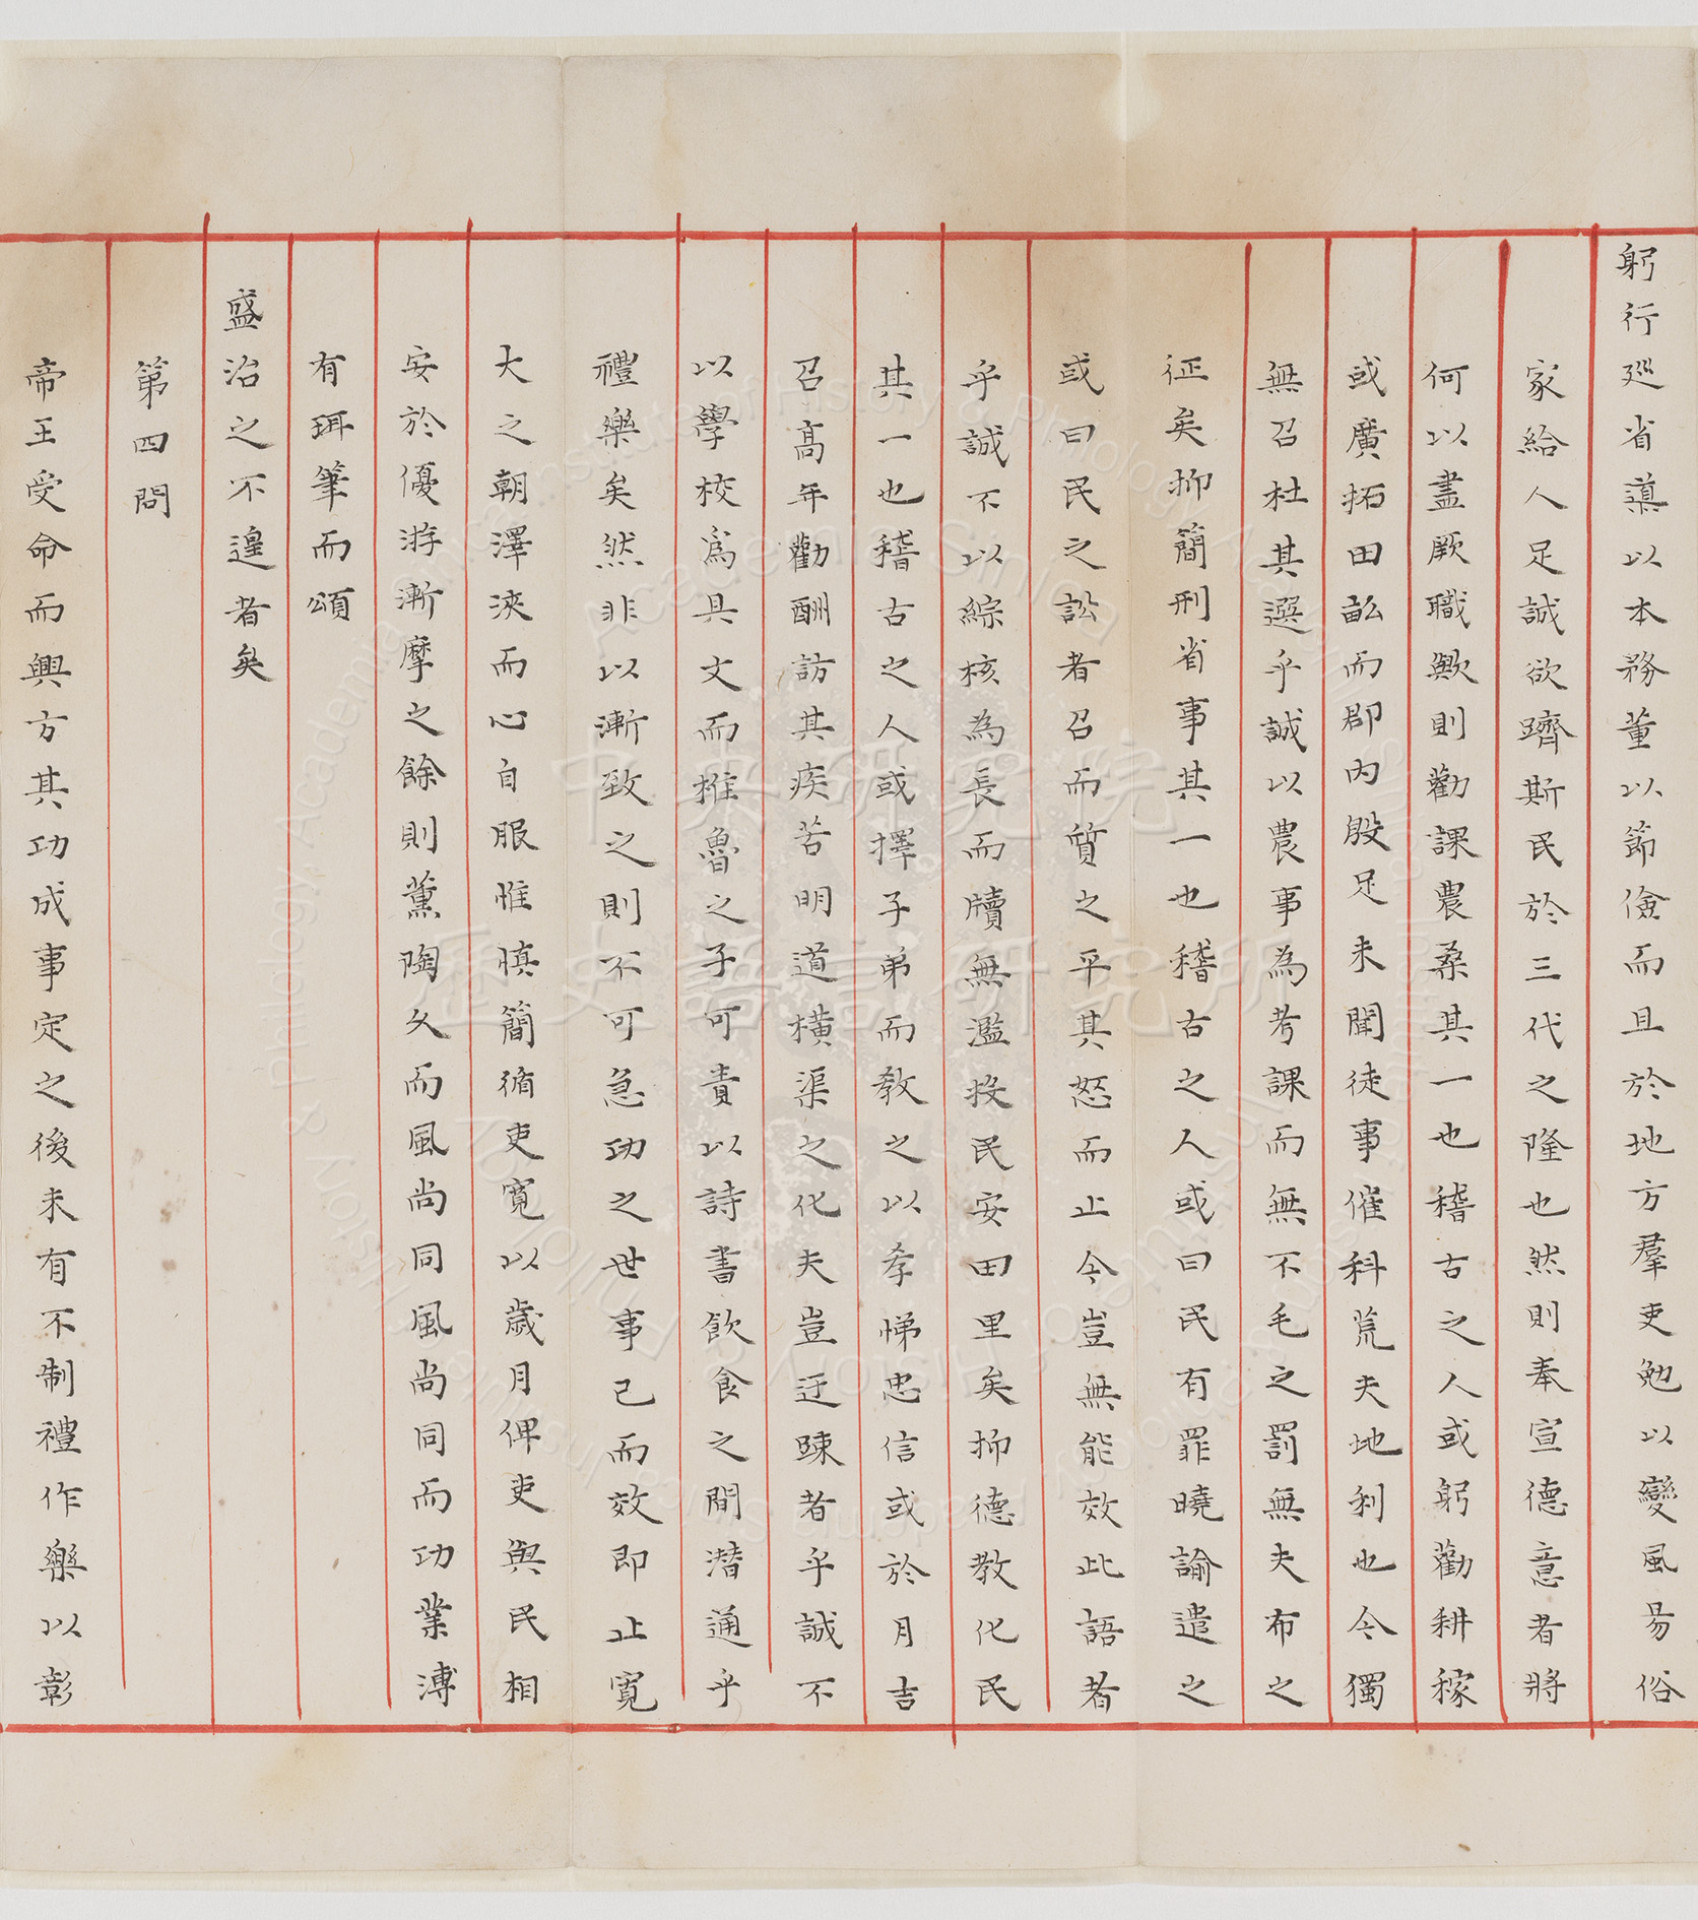 躬行廵省蕖以本務董以節儉而且於地方羣吏勉以變風昜俗
家給人足誠欲躋斯民於三代之隆也然則奉宣德意者將
何以盡厥職歟則勸課農桑其一也稽古之人或躬勸耕稼
或廣拓田畝而郡內殷足未聞徒事催科荒夫地利也今獨
無召杜其選乎誠以農事為考課而無不毛之罰無夫布之
征矣抑簡刑省事其一也稽古之人或曰民有罪曉諭遣之
或曰民之訟者召而質之平其怒而止今豈無能效此語者
乎誠不以綜核為長而牘無濫投民安田里矣抑德教化民
其一也稽古之人或擇子弟而教之以孝悌忠信或於月吉
召高年勸酬訪其疾苦明道橫渠之化夫豈迂踈者乎誠不
以學校爲具文而椎魯之子可責以詩書飲食之間潛通乎
禮樂矣然非以漸致之則不可急功之世事已而效即止寛
大之朝澤浹而心自服惟慎簡循吏寛以歲月俾吏與民相
安於優游漸摩之餘則薰陶久而風尚同風尚同而功業溥
有珥筆而頌
盛治之不遑者矣
第四問
帝王受命而興方其功成事定之後未有不制禮作樂以彰